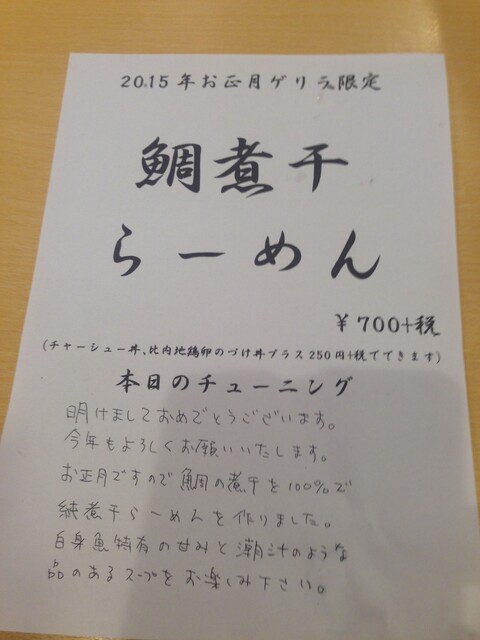 2015年お正月ゲリラ限定
鯛煮干
らーめん
¥700+税
(チャーシュー丼、比内地鶏卵のづけ丼プラス250円+税でできます)
本日のチューニング
明けましておめでとうございます。
今年もよろしくお願いいたします。
お正月ですので鯛の煮干を100%で
純煮干らーめんを作りました。
白身魚特有の甘みと潮汁のような
品のあるスープをお楽しみ下さい。